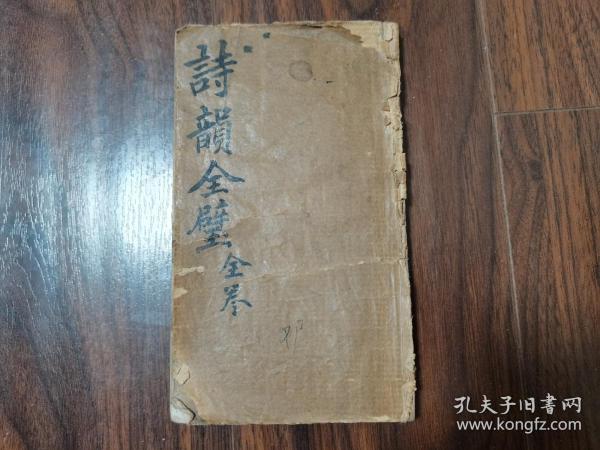 詩韻全璧
全卷
孔夫子旧書网
www.kongfz.com